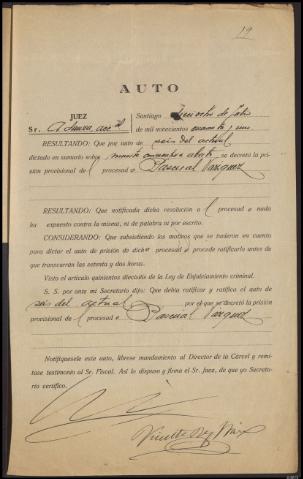 19
AUTO
JUEZ
Santiago
Sr.
de mil novecientos cuarenta y uno
RESULTANDO: Que por auto de seis del actual
dictado en sumario sobre se decreto la pri-
sion provisional de l procesad o Pascual Vázquez
RESULTANDO: Que notificada dicha resolucion a l procesad o nada
ha expuesto contra la misma, ni de palabra ni por escrito.
CONSIDERANDO: Que subsistiendo los motivos que se tuvieron en cuenta
para dictar el auto de prisión de dicho procesad o procede ratificarlo antes de
que transcurran las setenta y dos horas.
Visto el artículo quinientos dieciséis de la Ley de Enjuiciamiento criminal.
S. S. por ante mí Secretario dijo: Que debía ratificar y ratifica el auto de
seis del actual por el que se decretó la prisión
provisional de l procesad o Pascual Vázquez
Notifíquesele este auto, líbrese mandamiento al Director de la Carcel y remí-
tase testimonio al Sr. Fiscal. Así lo dispone y firma el Sr. Juez, de que yo Secreta-
rio certifico.
Vicente Rey